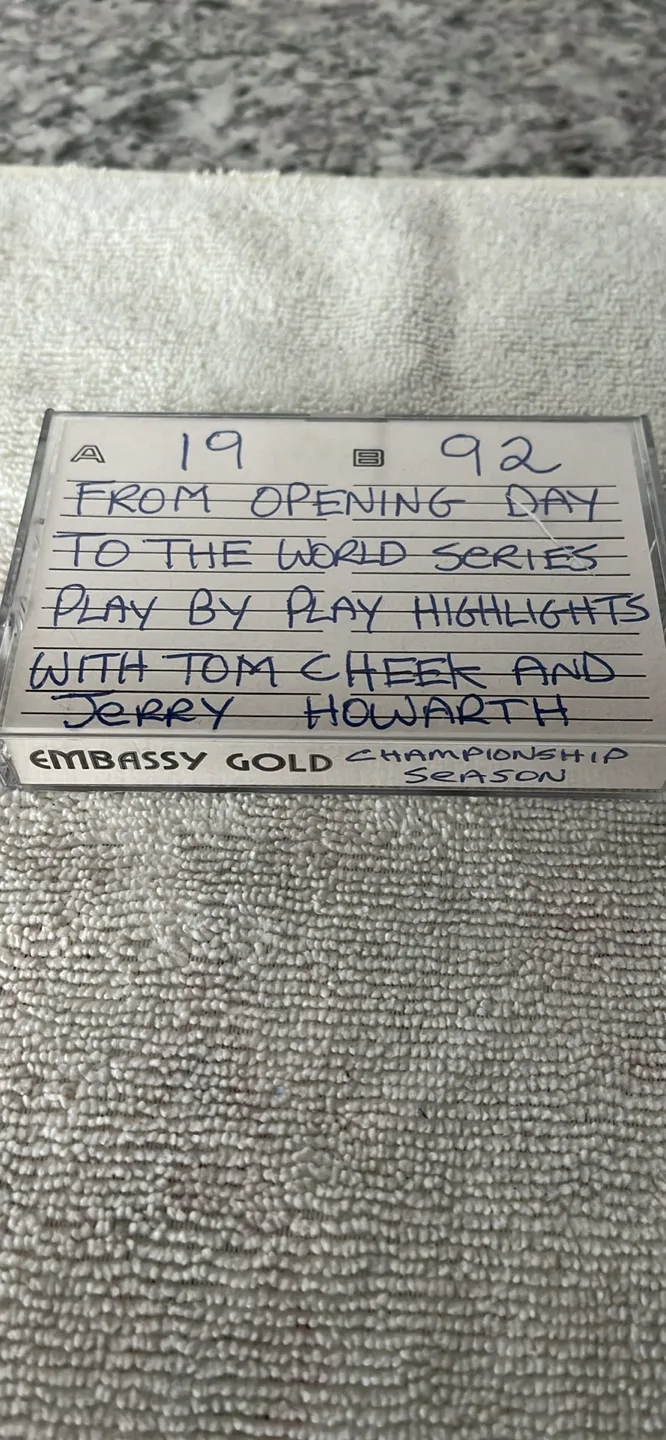 A 19 B 92
FROM OPENING DAY
TO THE WORLD SERIES
PLAY BY PLAY HIGHLIGHTS
WITH TOM CHEEK AND
JERRY HOWARTH
EMBASSY GOLD CHAMPIONSHIP
SEASON